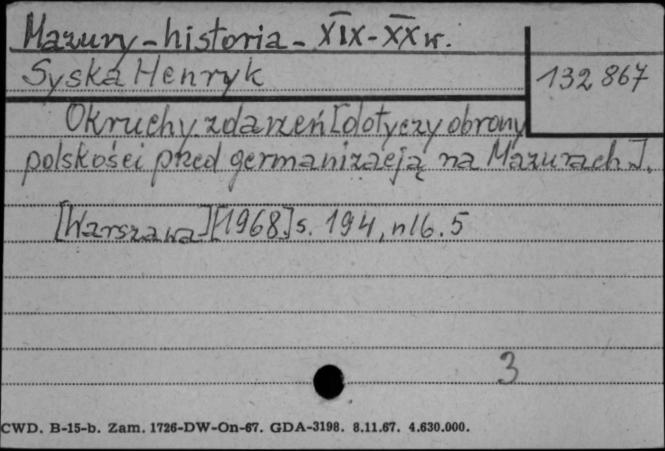 Mazury - historia - XIX - XX w.
Syska Henryk
132 867
Okruchy zdarzeń [dotyczy obrony
polskości przed germanizacją na Mazurach].
[Warszawa] [1968] s. 194, nlb. 5
3
CWD. B-15-b. Zam. 1726-DW-On-67. GDA-3198. 8.11.67. 4.630.000.